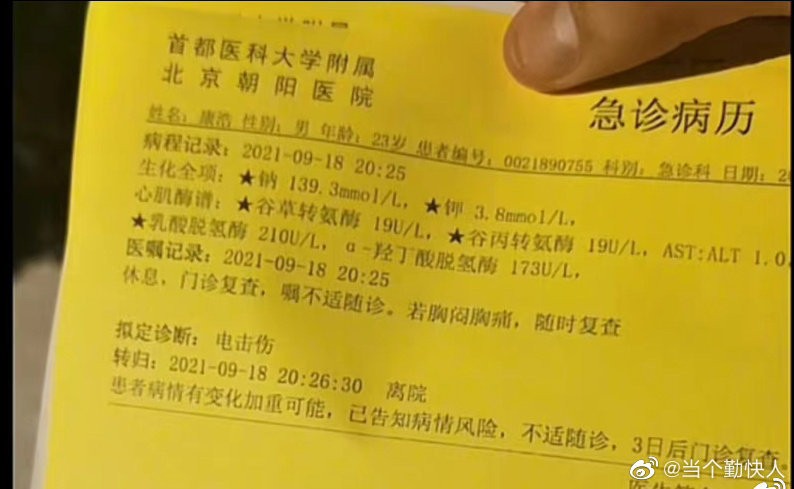 首都医科大学附属
北京朝阳医院
急诊病历
姓名：康浩 性别：男 年龄：23岁 患者编号：0021890755 科别：急诊科 日期：20
病程记录：2021-09-18 20:25
生化全项：★钠 139.3mmol/L，★钾 3.8mmol/L，
心肌酶谱：★谷草转氨酶 19U/L，★谷丙转氨酶 19U/L，AST:ALT 1.0,
★乳酸脱氢酶 210U/L，α-羟丁酸脱氢酶 173U/L，
医嘱记录：2021-09-18 20:25
休息，门诊复查，嘱不适随诊。若胸闷胸痛，随时复查
拟定诊断：电击伤
转归：2021-09-18 20:26:30 离院
患者病情有变化加重可能，已告知病情风险，不适随诊，3日后门诊复查。
@当个勤快人